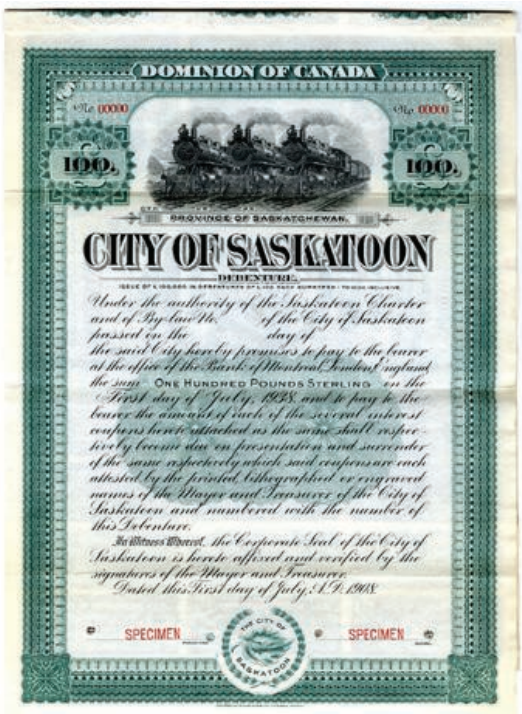 DOMINION OF CANADA
No. 00000 No. 00000
100. 100.
PROVINCE OF SASKATCHEWAN.
CITY OF SASKATOON
DEBENTURE.
Under the authority of the Saskatoon Charter
and of By-law No. of the City of Saskatoon
passed on the day of
the said City hereby promises to pay to the bearer
at the office of the Bank of Montreal, London, England,
the sum ONE HUNDRED POUNDS STERLING on the
First day of July, 1938, and to pay to the
bearer the amount of each of the several interest
coupons hereto attached as the same shall respec-
tively become due on presentation and surrender
of the same respectively which said coupons are each
attested by the printed, lithographed or engraved
names of the Mayor and Treasurer of the City of
Saskatoon and numbered with the number of
this Debenture.
In Witness Whereof, the Corporate Seal of the City of
Saskatoon is hereto affixed and verified by the
signatures of the Mayor and Treasurer.
Dated this First day of July, A.D. 1908.
SPECIMEN SPECIMEN
THE CITY OF
SASKATOON